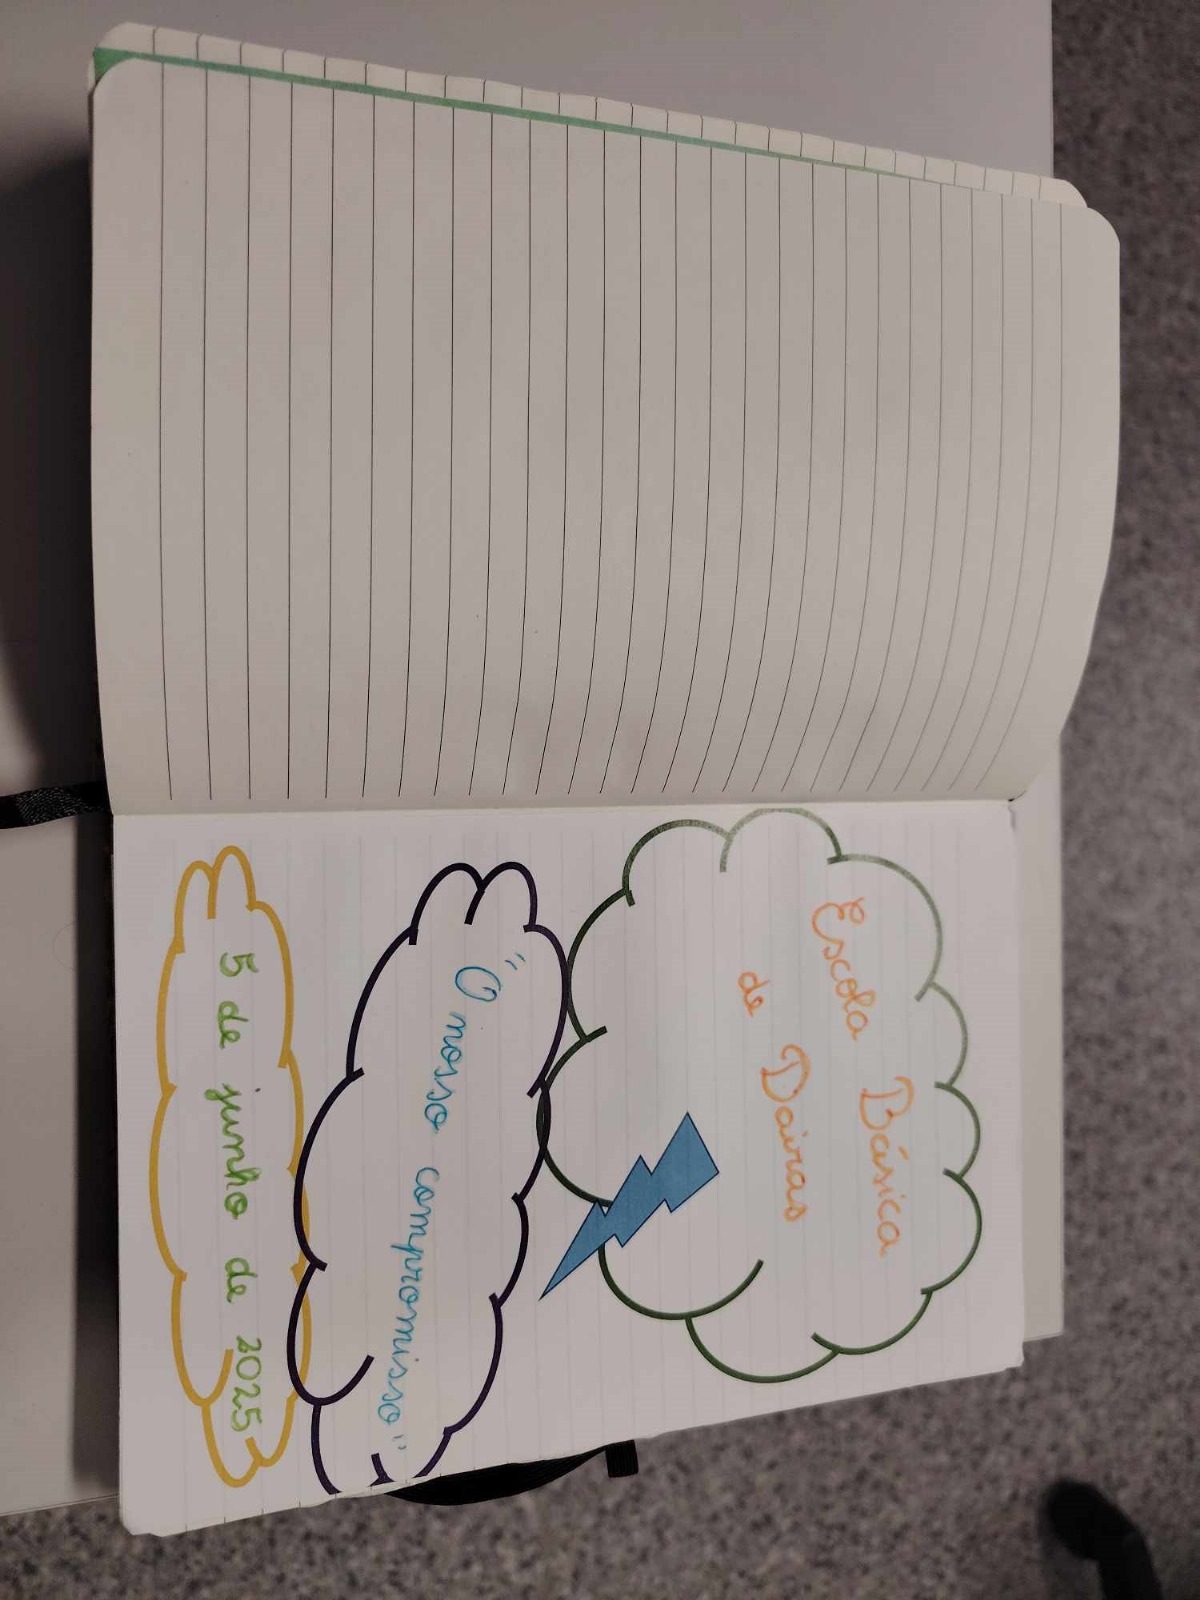 Escola Básica
de Dairas
"O nosso compromisso"
5 de junho de 2025